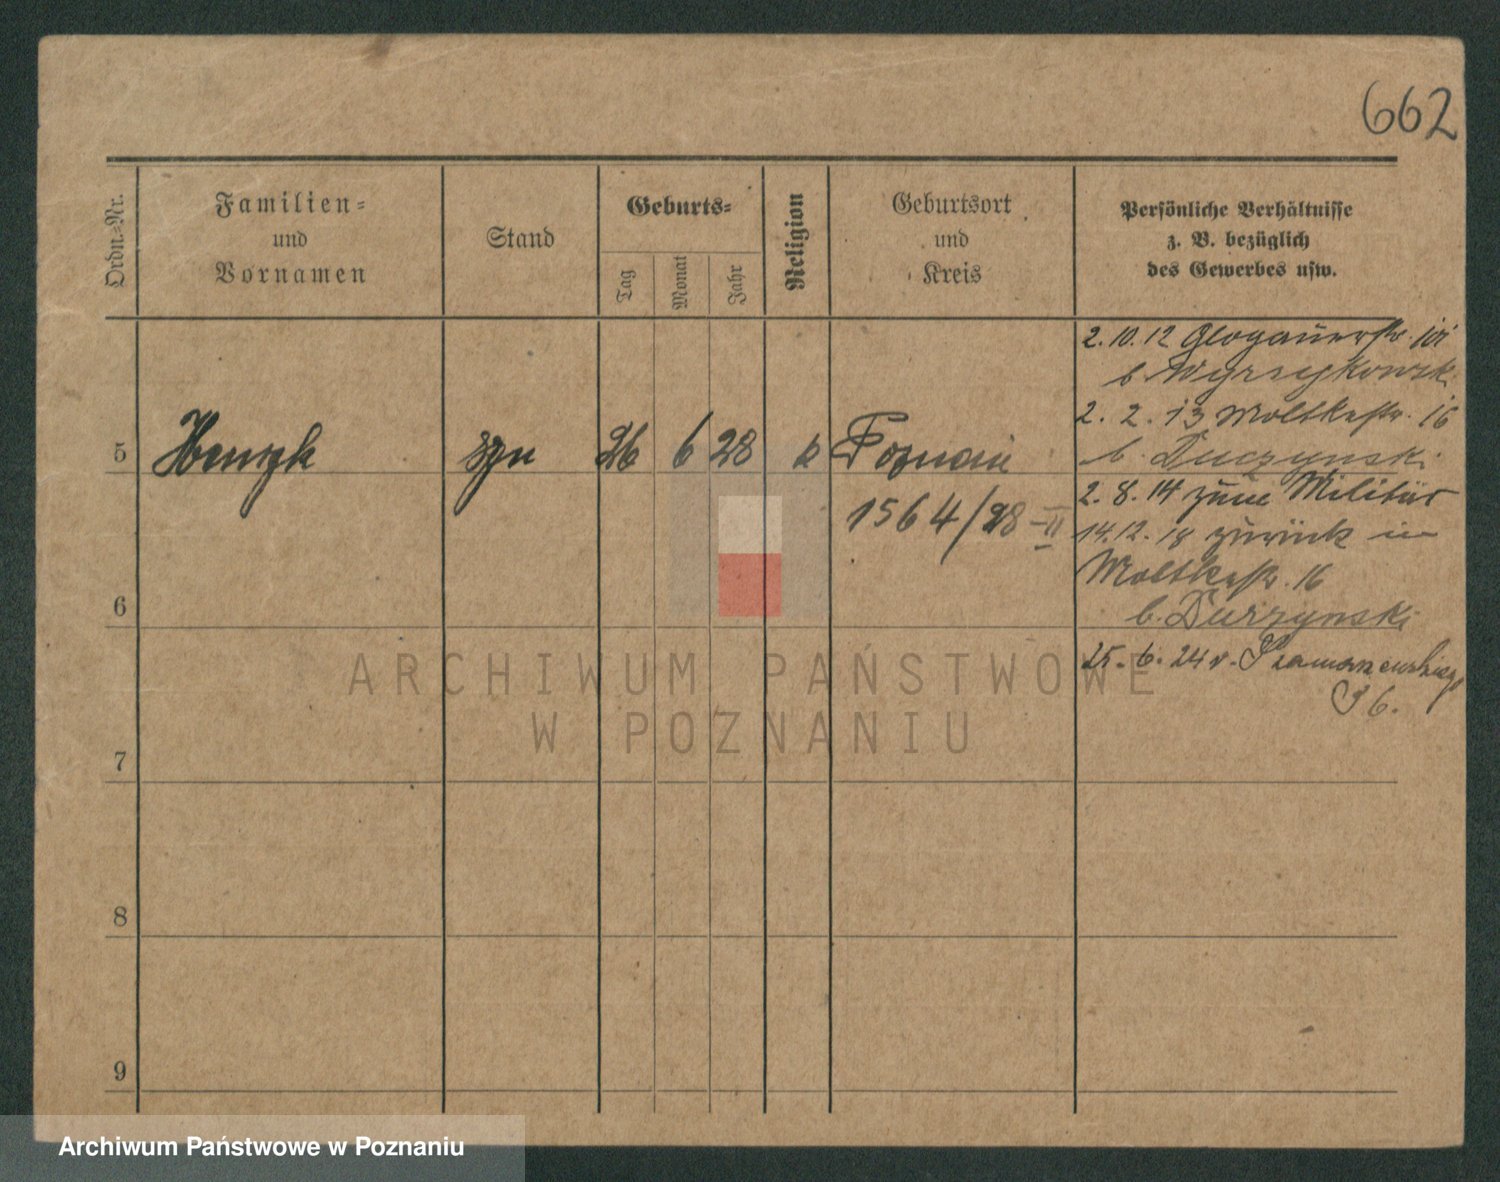 662
Ordn.-Nr.
Familien-
und
Vornamen
Stand
Geburts-
Tag
Monat
Jahr
Religion
Geburtsort
und
Kreis
Persönliche Verhältnisse
z. B. bezüglich
des Gewerbes usw.
5
Henryk
syn
26
6
28
k
Poznań
1564/28-II
6
7
8
9
2. 10. 12 Glogauerstr. 101
b. Wyrzykowski
2. 2. 13 Moltkestr. 16
b. Duczynski
2. 8. 14 zum Militär
14. 12. 18 zurück in
Moltkestr. 16
b. Duczynski
25. 6. 24 v. Szamarzewskiego
36.
ARCHIWUM PAŃSTWOWE
W POZNANIU
Archiwum Państwowe w Poznaniu